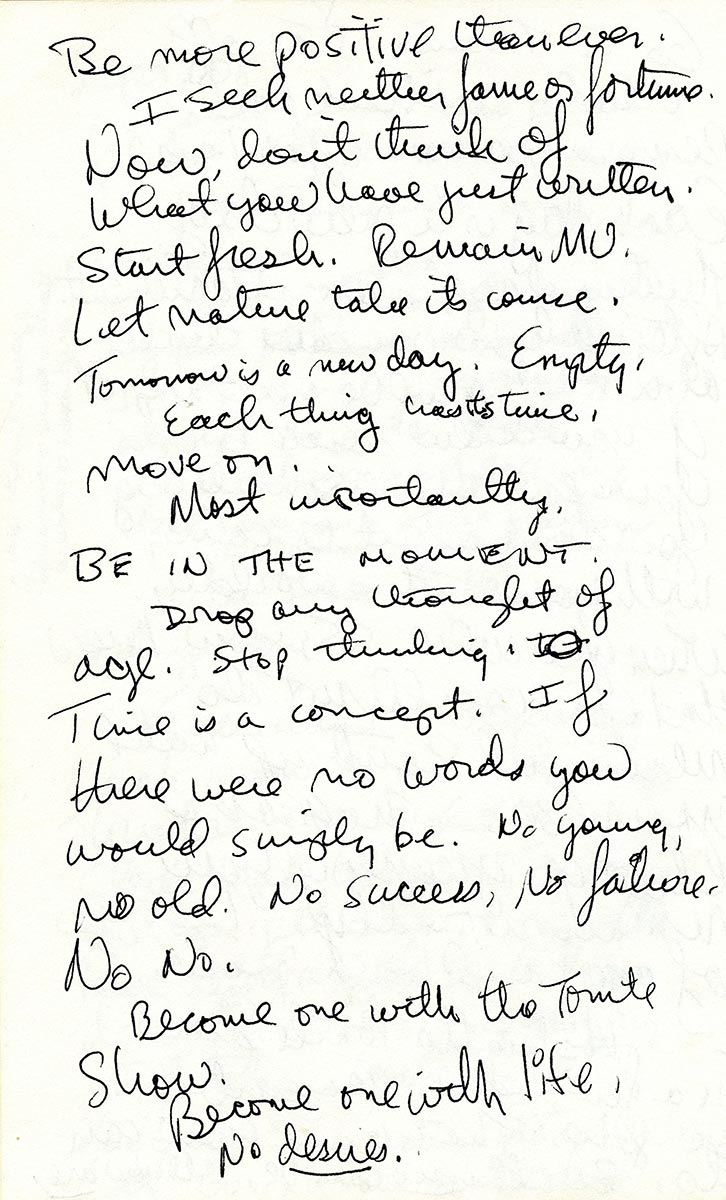 Be more positive than ever.
I seek neither fame or fortune.
Now, don't think of
what you have just written.
Start fresh. Remain MU.
Let nature take its course.
Tomorrow is a new day. Empty.
Each thing has its time.
Move on.
Most importantly,
BE IN THE MOMENT.
Drop any thought of
age. Stop thinking.
Time is a concept. If
there were no words you
would simply be. No young,
no old. No success, No failure.
No No.
Become one with the Tonite
Show.
Become one with life.
No desires.